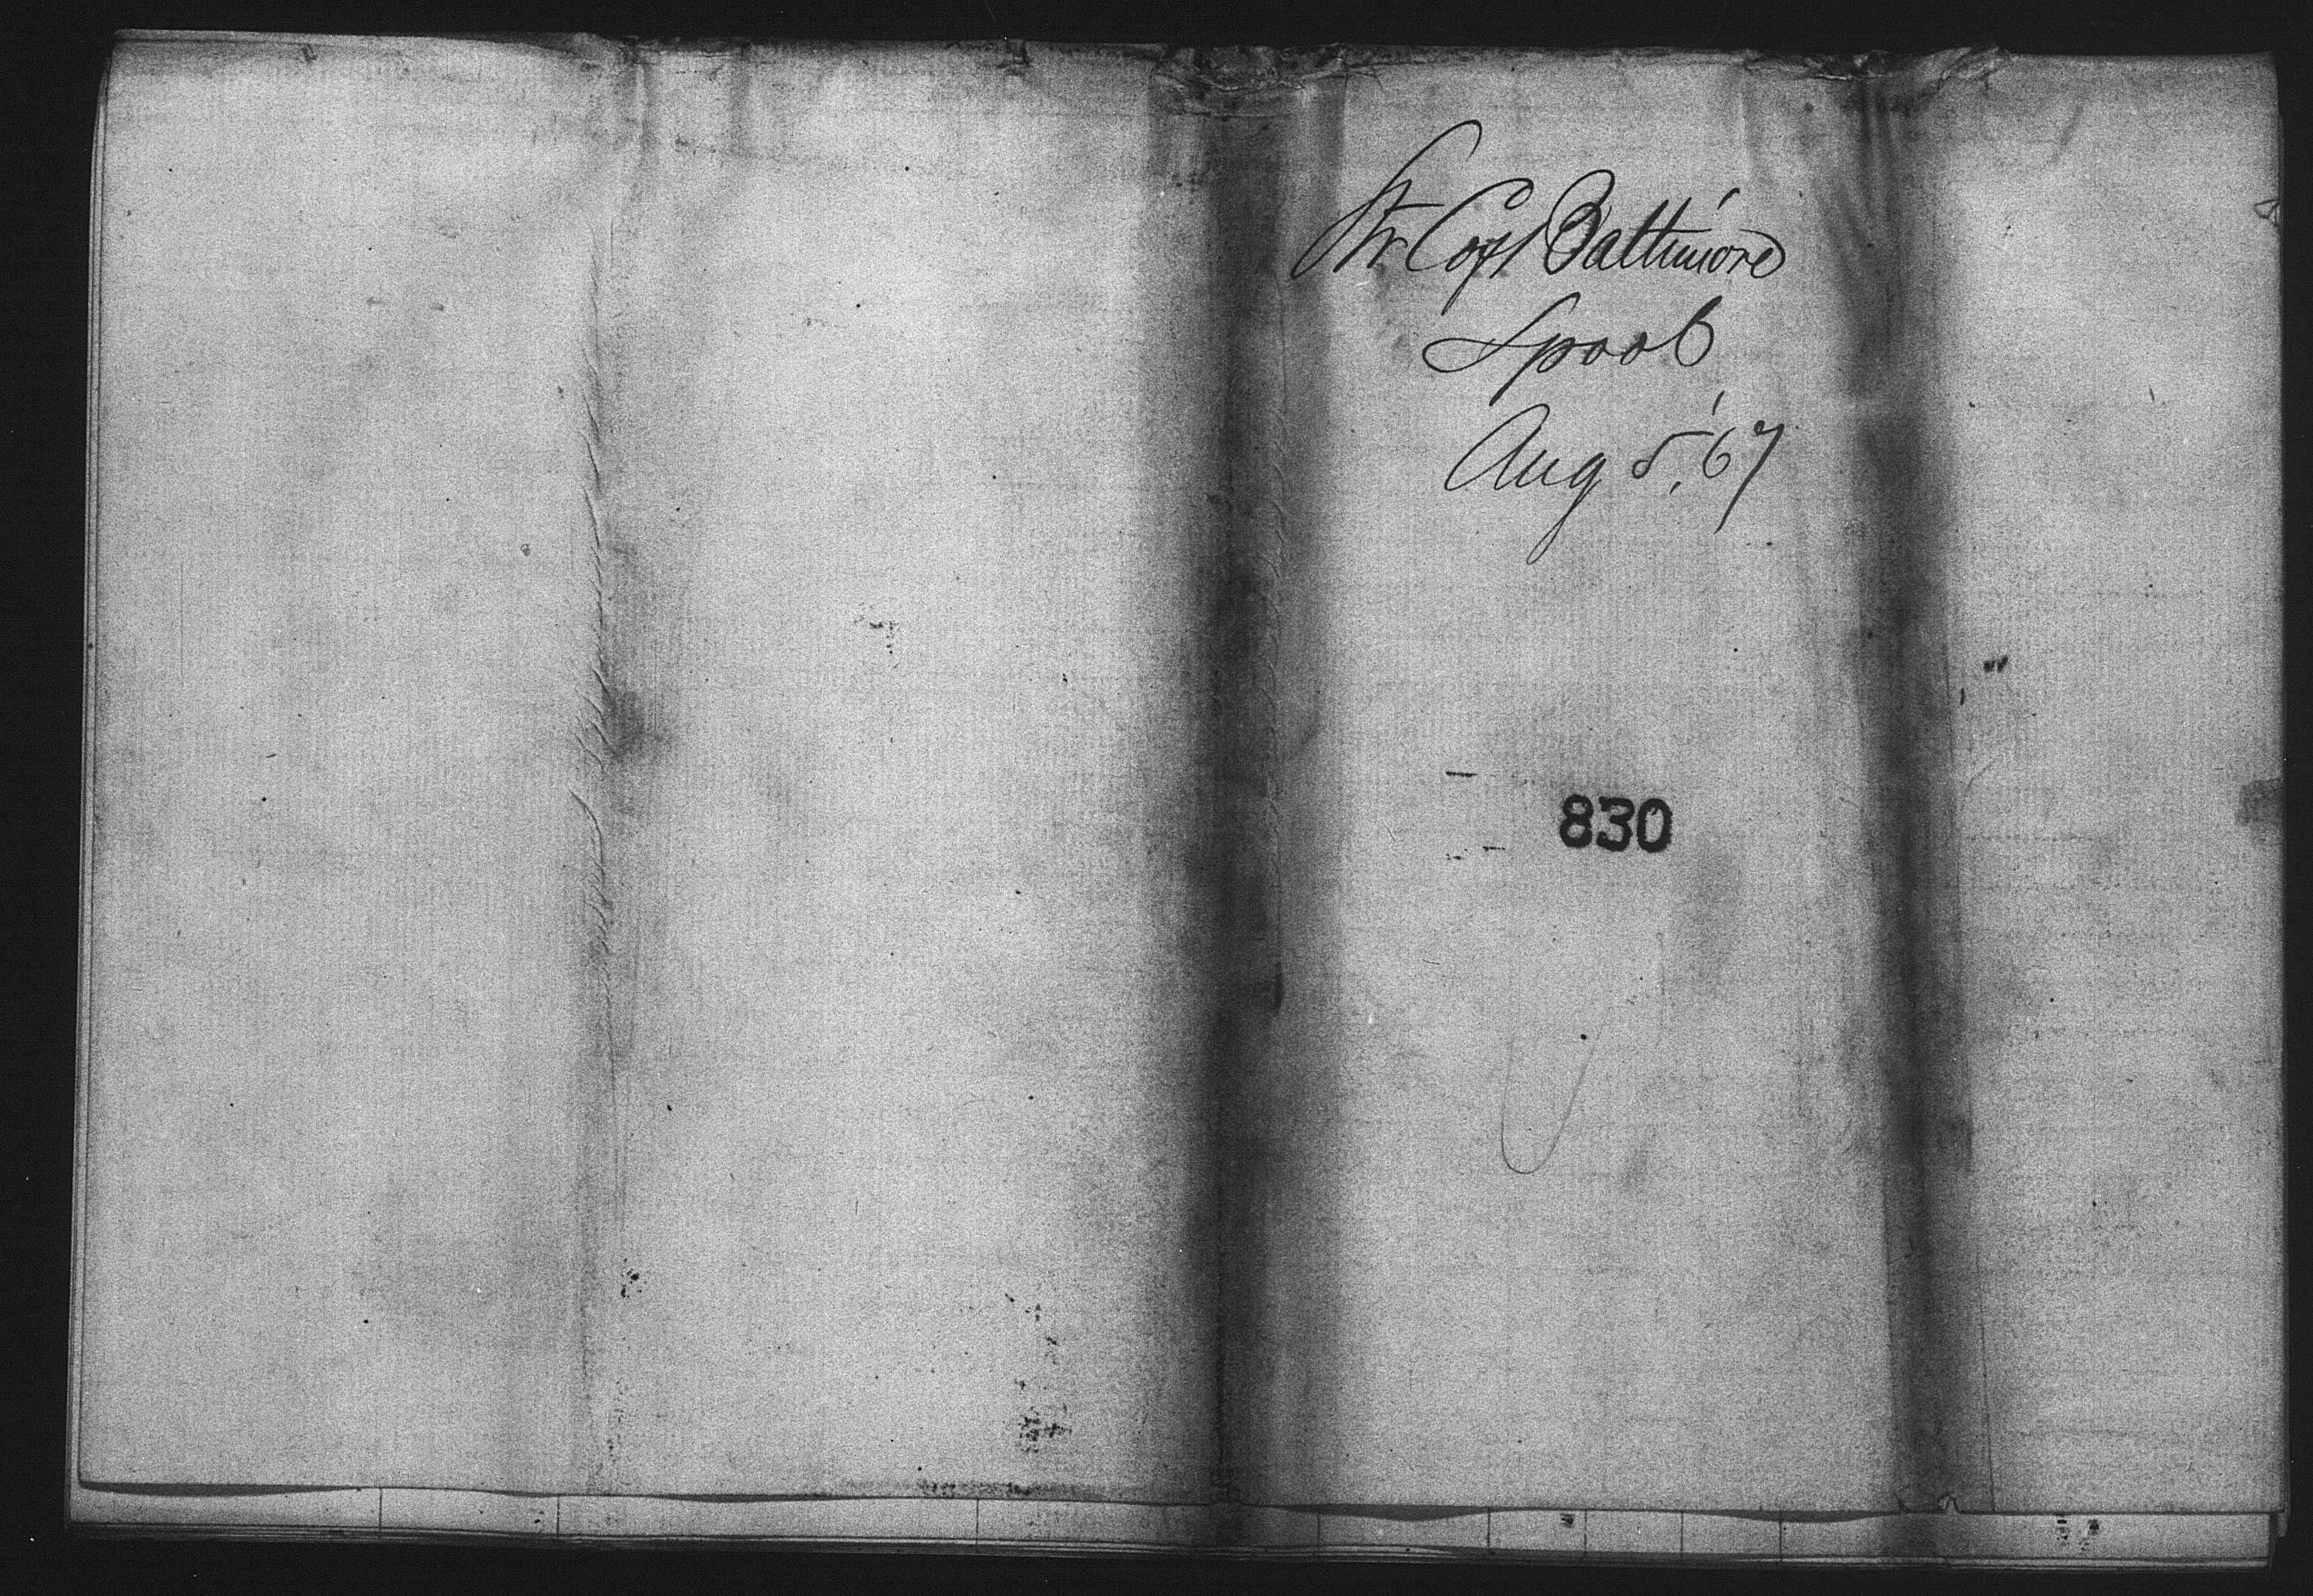 Str City Baltimore
Lpool
Aug 5, '67
830